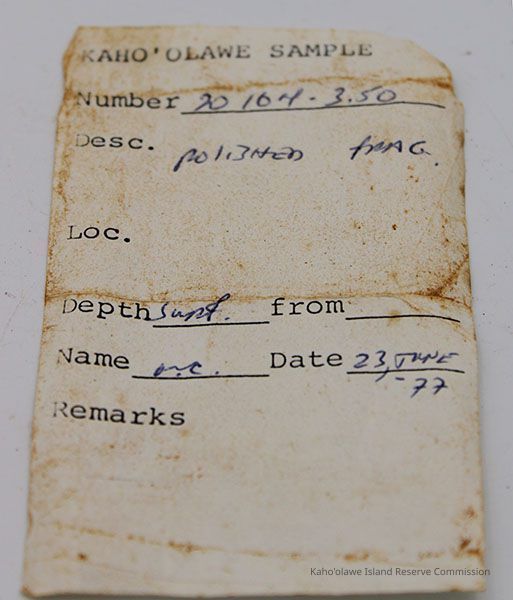 KAHO'OLAWE SAMPLE
Number 20 164 - 3.50
Desc. POLISHED FRAG.
Loc.
Depth Surf. from
Name Date 23, JUNE
-77
Remarks
Kaho'olawe Island Reserve Commission